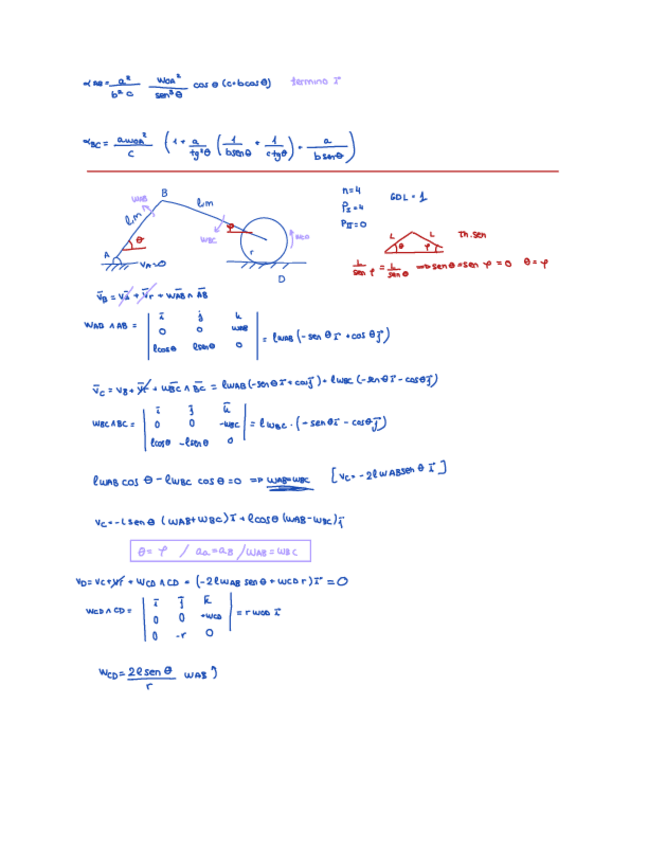 αAB = a² / b² c  WOA² / sen³θ  cos θ (c+bcosθ)  termino i⃗
αBC = aWOA² / c (1 + a / tg²θ (1 / bsenθ + 1 / ctgθ) + a / bsenθ)
B
WAB
l,m
l,m
n=4
GDL = 1
PI=4
PII=0
θ
WBC
φ
WCD
A
VA=0
r
D
L
L
θ
φ
Th.sen
L / sen φ = L / sen θ ⇒ sen θ - sen φ = 0  θ = φ
V̄B = V̄a + V̄r + W̄AB ∧ ĀB
WAB ∧ AB =
ī j̄ k
0 0 WAB
lcosθ lsenθ 0
= lWAB (-sen θ i⃗ + cos θj⃗)
V̄C = VB + V̄r + W̄BC ∧ B̄C = lWAB (-senθ i⃗ + cosj⃗) + lWBC (-senθ i⃗ - cosθj⃗)
WBC∧BC =
ī j̄ k̄
0 0 -WBC
lcosθ -lsenθ 0
= lWBC · (-sen θi⃗ - cosθj⃗)
lWAB cos θ - lWBC cos θ = 0 ⇒ WAB=WBC  [VC = -2lWABsen θ i⃗]
VC = -l sen θ (WAB+WBC) i⃗ + lcosθ (WAB-WBC) j⃗
θ = φ / aA = aB / WAB = WBC
VD = VC + V̄r + WCD ∧ CD = (-2lWAB sen θ + WCD r) i⃗ = 0
WCD ∧ CD =
ī j̄ k̄
0 0 +WCD
0 -r 0
= r WCD i⃗
WCD = 2l sen θ / r  WAB ↺